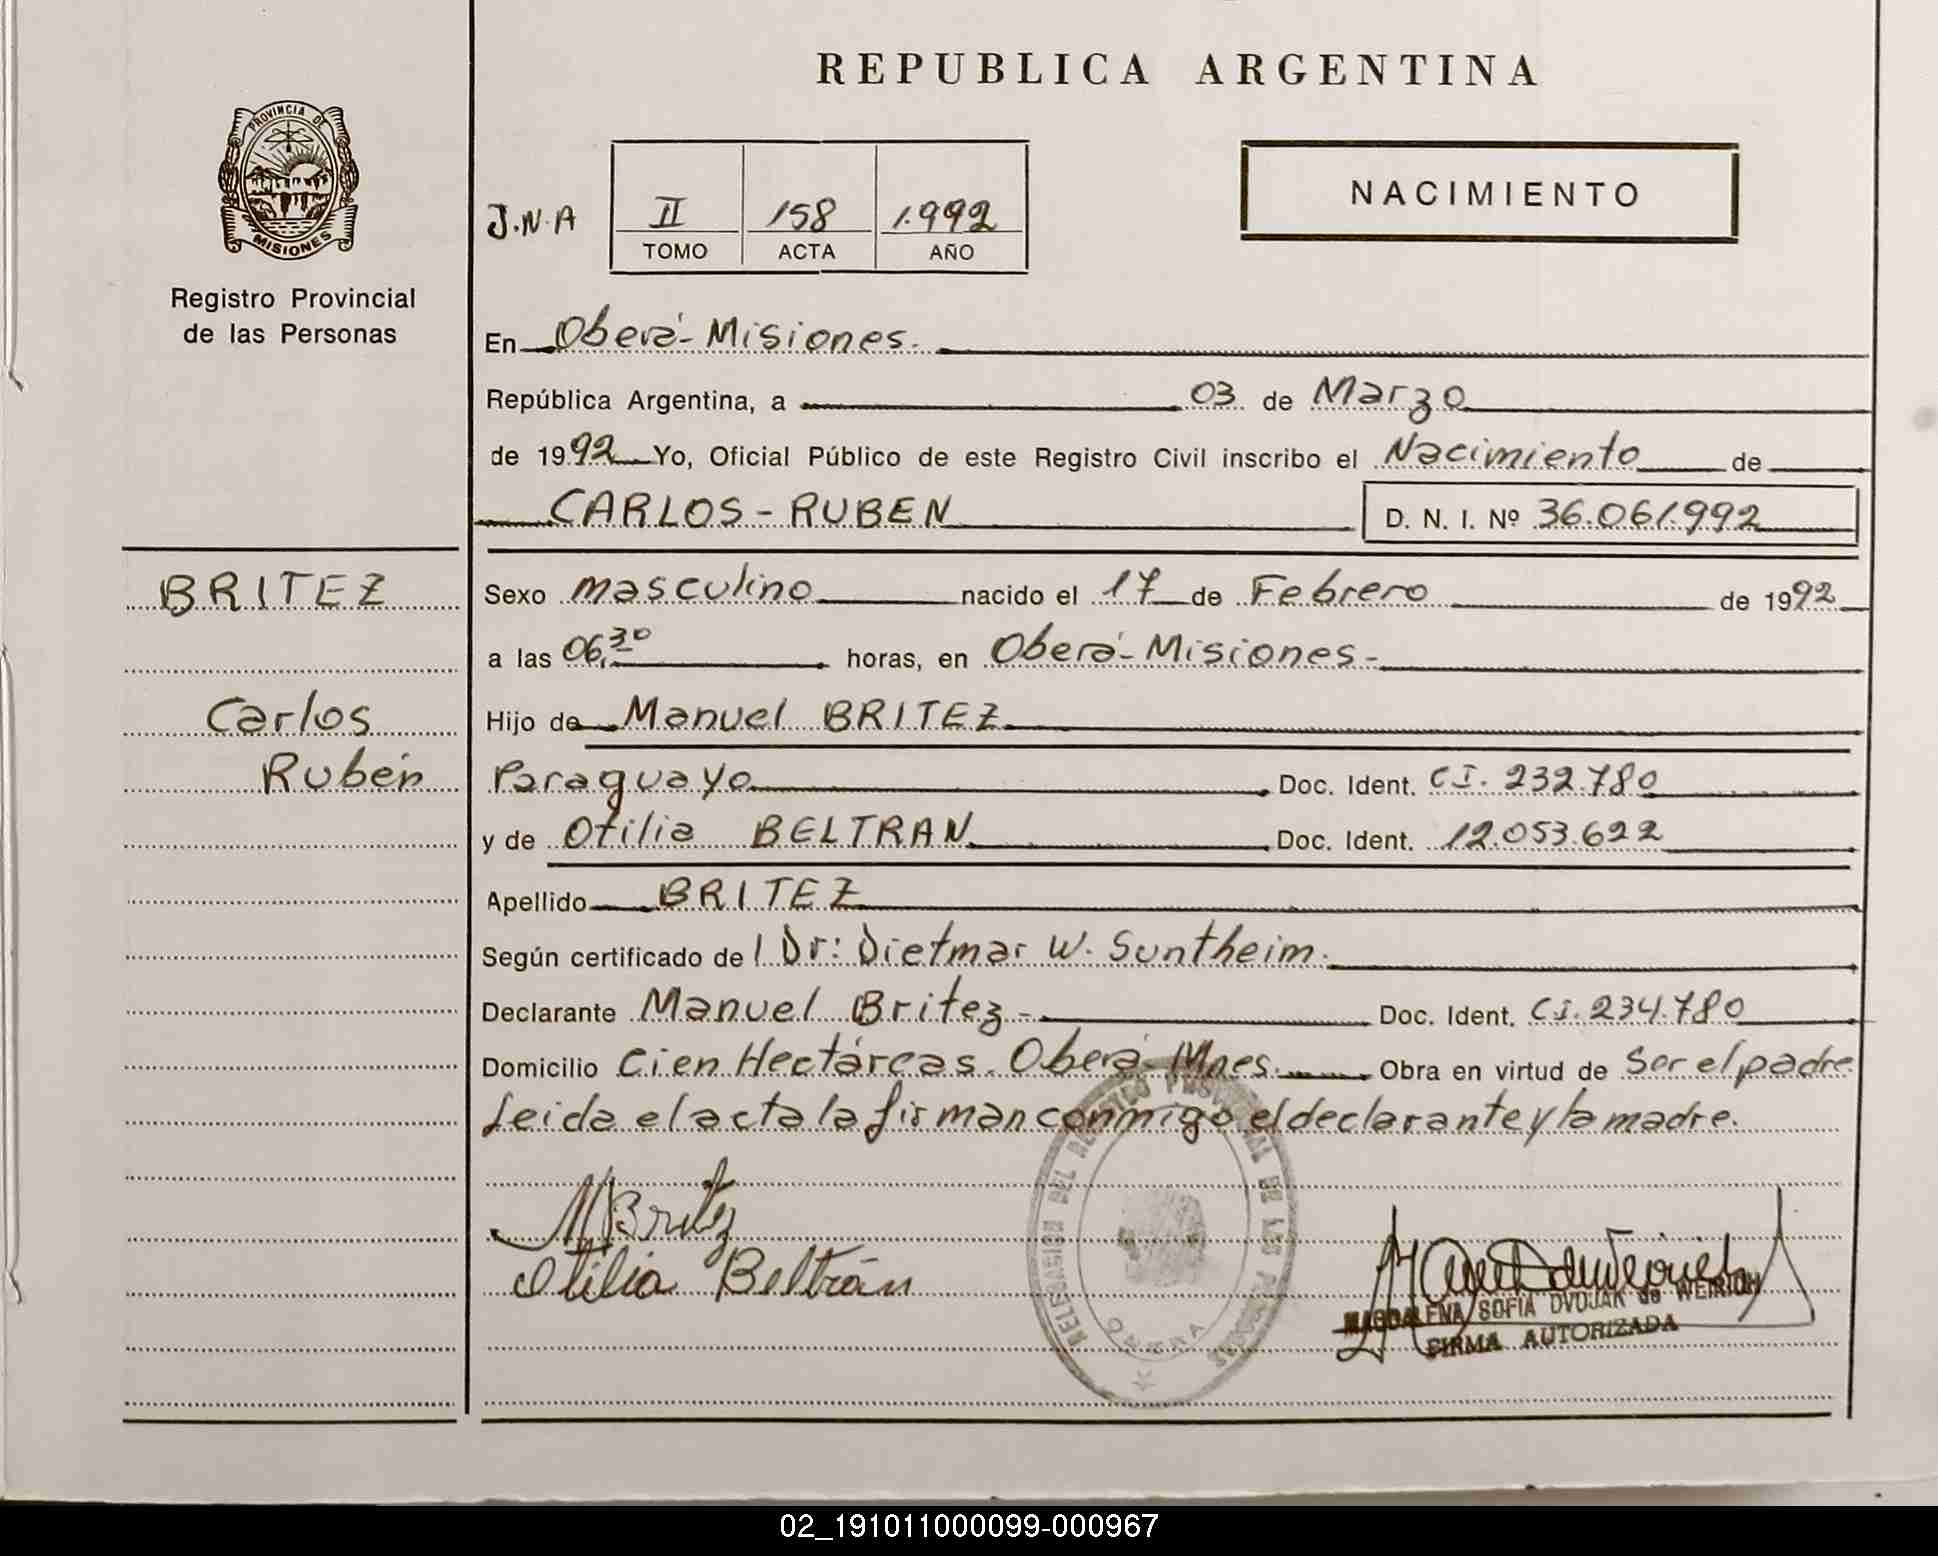 REPUBLICA ARGENTINA
PROVINCIA DE
MISIONES
Registro Provincial
de las Personas
J.N.A
II 158 1.992
TOMO ACTA AÑO
NACIMIENTO
En Oberá-Misiones.
República Argentina, a 03 de Marzo
de 1992 Yo, Oficial Público de este Registro Civil inscribo el Nacimiento de
CARLOS-RUBEN D. N. I. Nº 36.061.992
BRITEZ
Carlos
Rubén
Sexo masculino nacido el 17 de Febrero de 1992
a las 06,30 horas, en Oberá-Misiones-
Hijo de Manuel BRITEZ
Paraguayo Doc. Ident. CI. 232.780
y de Otilia BELTRAN Doc. Ident. 12.053.622
Apellido BRITEZ
Según certificado de l Dr: Dietmar W. Suntheim.
Declarante Manuel Britez- Doc. Ident. C.I. 234.780
Domicilio Cien Hectáreas. Oberá-Mnes. Obra en virtud de Ser el padre
Leida el acta la firman conmigo el declarante y la madre.
MBritez
Otilia Beltrán
DELEGACION DEL REGISTRO PROVINCIAL DE LAS PERSONAS
OBERA
MAGDALENA SOFIA DVOJAK de WEIRICH
FIRMA AUTORIZADA
02_191011000099-000967